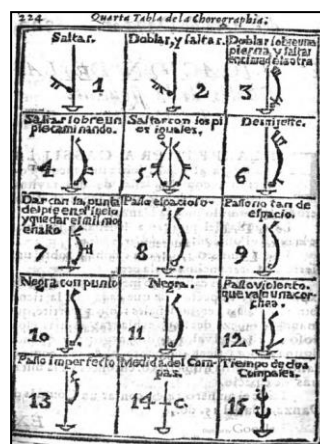 224 Quarta Tabla de la Chorographia.
Saltar.
1
Doblar, y saltar.
2
Doblar sobre una
pierna y saltar
encima de la otra
3
Saltar sobre un
pie caminando.
4
Saltar con los pi
es iguales.
5
6
Dar con la punta
del pie en el suelo
y quedar el mismo
7
Passo espacioso
8
Passo no tan de
espacio.
9
Negra con punto
10
Negra.
11
Passo violento
que vale una cor
chea.
12
Passo imperfecto
13
Medida del Com
pas.
14 C.
Tiempo de dos
Compases.
15